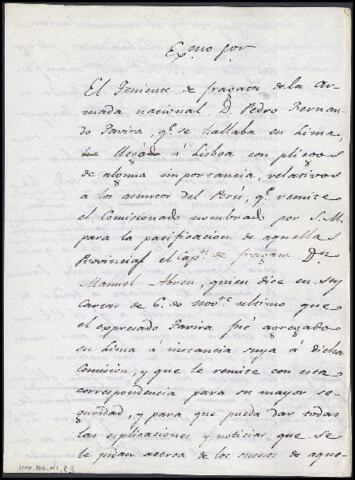 Exmo Sor
El Teniente de fragata de la Ar-
mada nacional D. Pedro Bernar-
do Tavira, q.e se hallaba en Lima,
llegó á Lisboa con pliegos
de alguna importancia, relativos
a los asuntos del Perú, q.e remite
el Comisionado nombrado por S.M.
para la pacificacion de aquellas
Provincias el Cap.n de fragata Dn
Manuel Abreu, quien dice en sus
cartas de 6 de nov.re ultimo que
el expresado Tavira fué agregado
en Lima á instancia suya á dicha
Comision, y que le remite con esta
correspondencia para su mayor se-
guridad, y para que pueda dar todas
las explicaciones y noticias que se
le pidan acerca de los sucesos de aque-